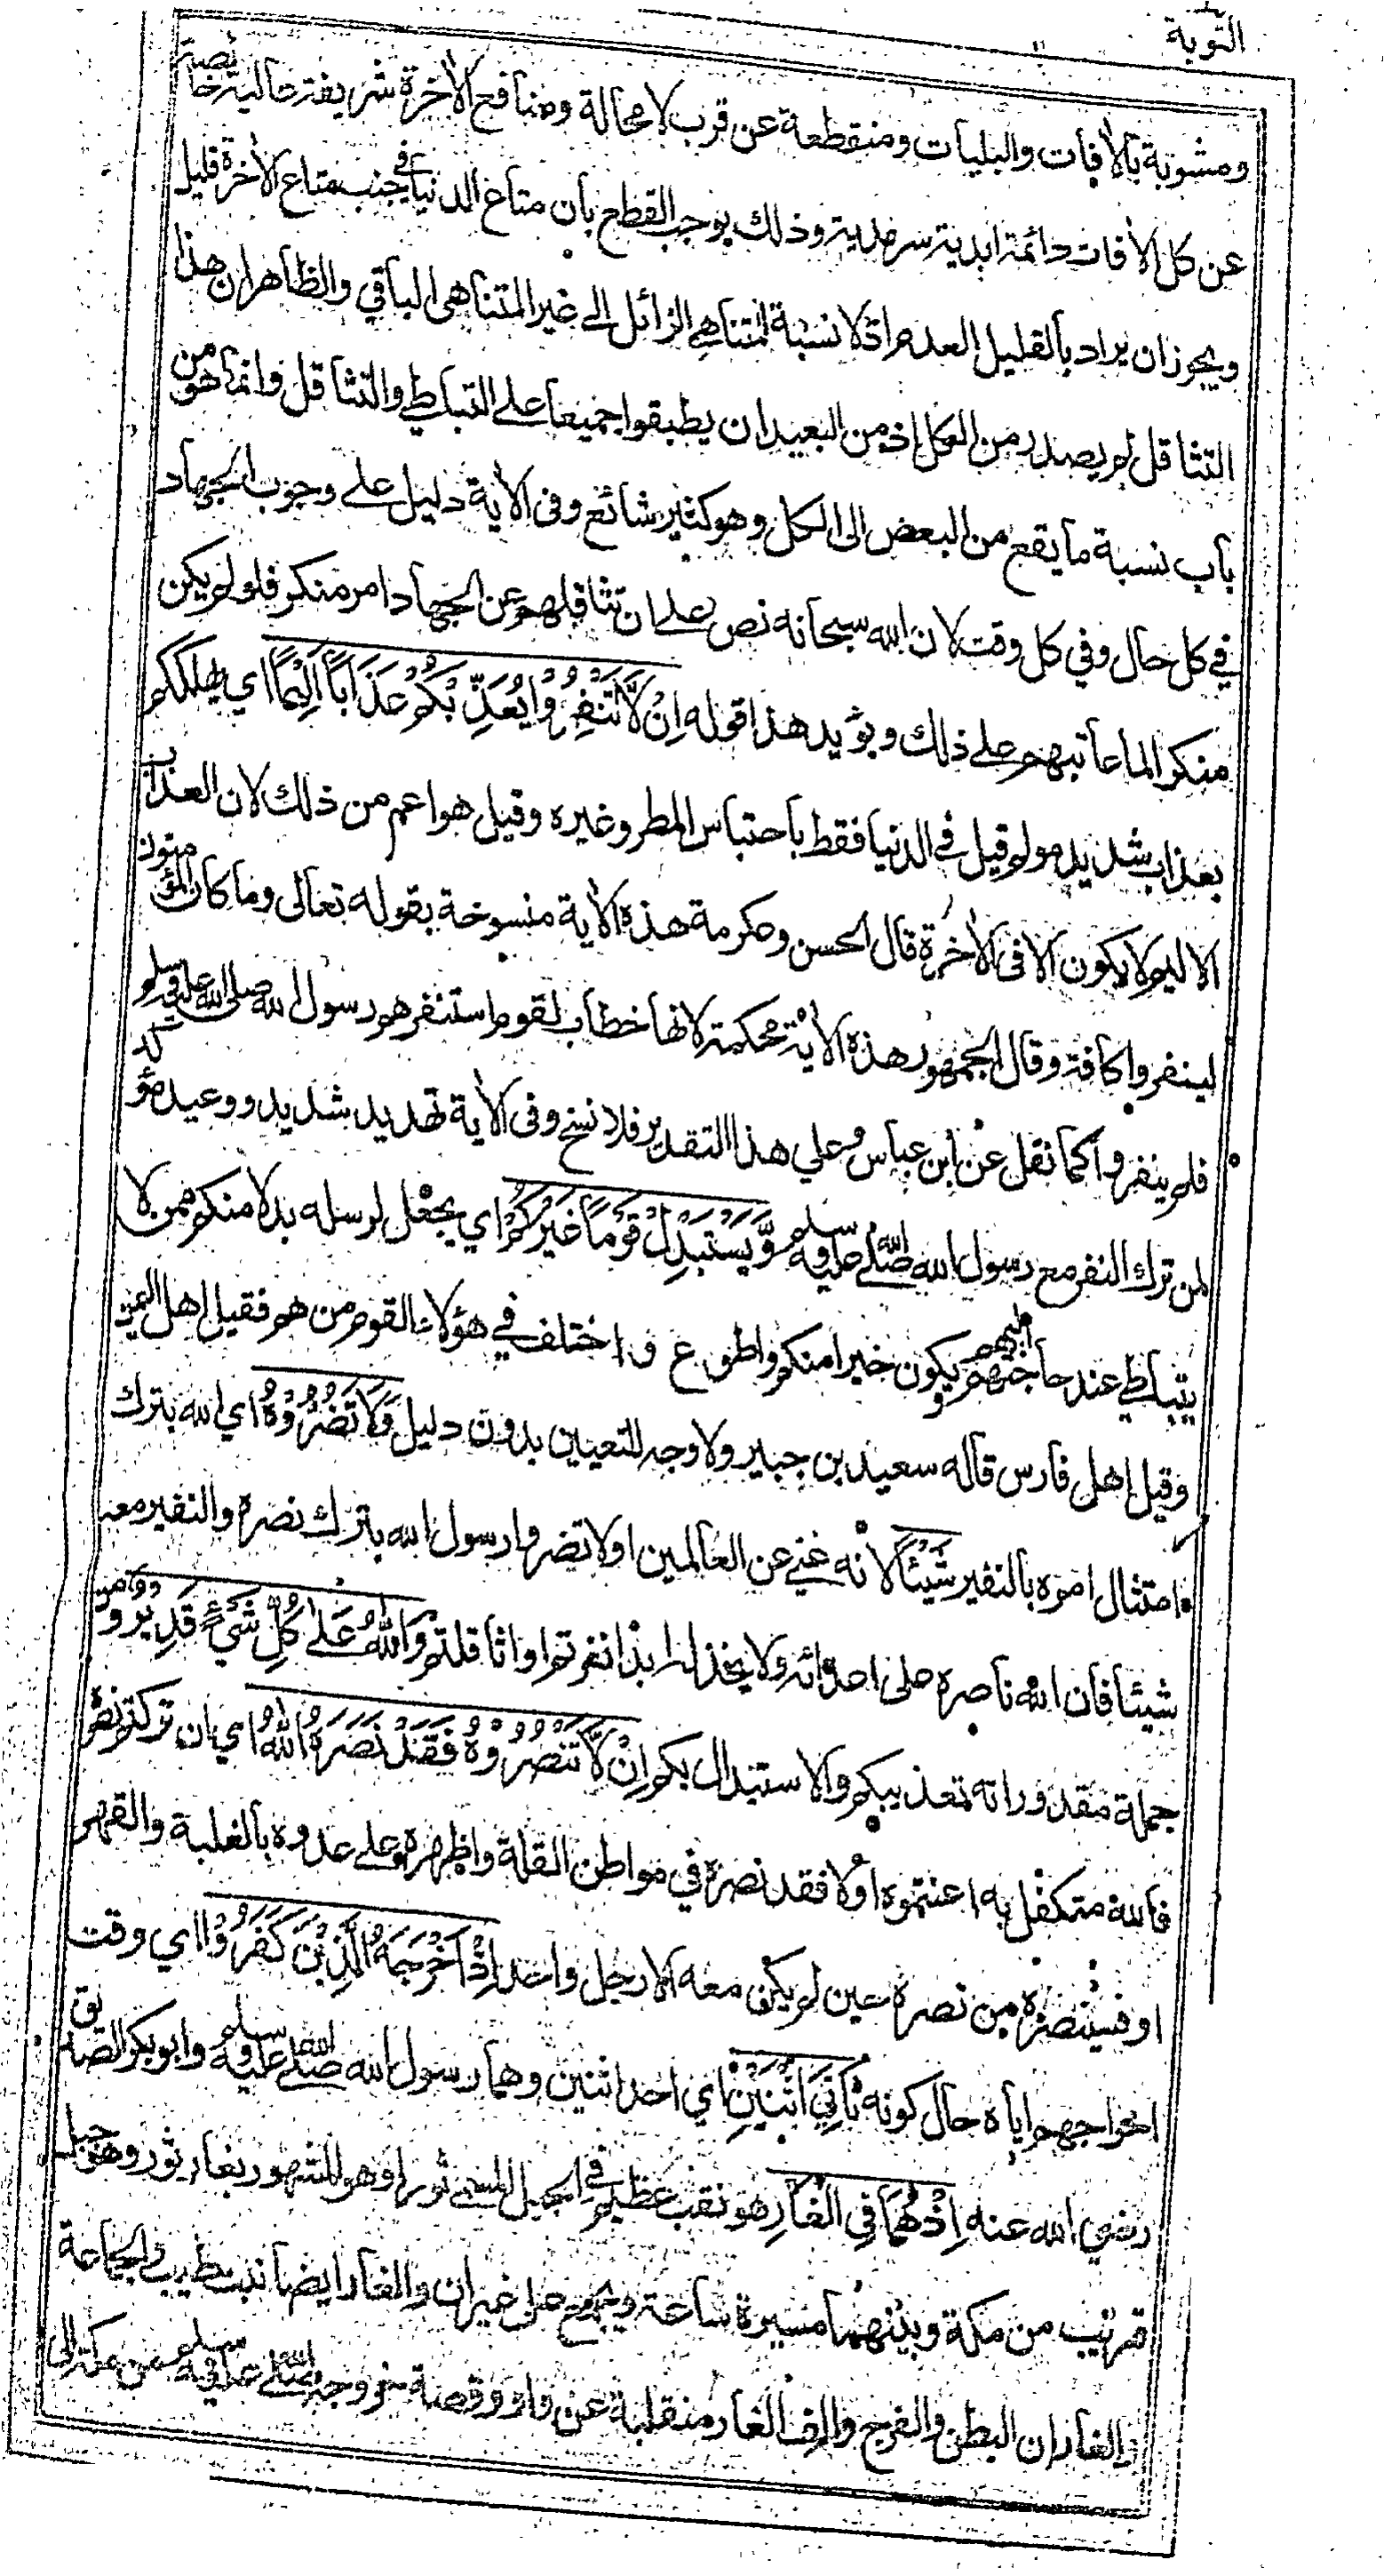 التوبة
ومشوبة بالأفات والبليات ومنقطعة عن قرب لا محالة ومنافع الأخرة شريفة عالية خالصة
عن كل الأفات دائمة ابدية سرمدية وذلك يوجب القطع بان متاع الدنيا في جنب متاع الأخرة قليل
ويجوز ان يراد بالقليل العدم اذ لا نسبة للمتناهي الزائل الى غير المتناهي الباقي والظاهر ان هذا
التثاقل لم يصدر من الكل اذ من البعيد ان يطبقوا جميعا على التباطي والتثاقل وانما هو من
باب نسبة ما يقع من البعض الى الكل وهو كثير شائع وفي الأية دليل على وجوب الجهاد
في كل حال وفي كل وقت لان الله سبحانه نص على ان تثاقلهم عن الجهاد امر منكر فلو لم يكن
منكرا لما عاتبهم على ذلك ويؤيد هذا قوله اِنْ لَّا تَنْفِرُوْا يُعَذِّبْكُمْ عَذَابًا اَلِيْمًا اي يهلككم
بعذاب شديد مولم قيل في الدنيا فقط باحتباس المطر وغيره وقيل هو اعم من ذلك لان العذاب
الاليم لا يكون الا في الأخرة قال الحسن وعكرمة هذه الأية منسوخة بقوله تعالى وما كان المؤمنون
لينفروا كافة وقال الجمهور هذه الأية محكمة لانها خطاب لقوم استنفرهم رسول الله صلى الله عليه وسلم
فلم ينفروا كما نقل عن ابن عباس وعلى هذا التقدير فلا نسخ وفي الأية تهديد شديد ووعيد مؤكد
لمن ترك النفر مع رسول الله صلى الله عليه وسلم وَّيَسْتَبْدِلْ قَوْمًا غَيْرَكُمْ اي يجعل لرسله بدلا منكم ممن لا
يتباطي عند حاجتهم اليهم ويكون خيرا منكم واطوع واختلف في هؤلاء القوم من هم فقيل اهل اليمن
وقيل اهل فارس قاله سعيد بن جبير ولا وجه للتعيين بدون دليل وَلَا تَضُرُّوْهُ اي الله بترك
امتثال امره بالنفير شَيْئًا لانه غني عن العالمين او لا تضروا رسول الله بترك نصره والنفير معه
شيئا فان الله ناصره على اعدائه ولا يخذله ابدا نفرتم او اثاقلتم وَاللهُ عَلٰى كُلِّ شَيْءٍ قَدِيْرٌ ومن
جملة مقدوراته تعذيبكم والاستبدال بكم اِنْ لَّا تَنْصُرُوْهُ فَقَدْ نَصَرَهُ اللهُ اي ان تركتم نصره
فالله متكفل به اعنتموه او لا فقد نصره في مواطن القلة واظهره على عدوه بالغلبة والقهر
او فسينصره من نصره حين لم يكن معه الا رجل واحد اِذْ اَخْرَجَهُ الَّذِيْنَ كَفَرُوْا اي وقت
اخراجهم اياه حال كونه ثَانِيَ اثْنَيْنِ اي احد اثنين وهما رسول الله صلى الله عليه وسلم وابو بكر الصديق
رضي الله عنه اِذْ هُمَا فِي الْغَارِ هو نقب عظيم في الجبل المسمى ثورا وهو المشهور بغار ثور وهو جبل
قريب من مكة وبينهما مسيرة ساعة ويجمع على غيران والغار ايضا نبت طيب والجماعة
والغاران البطن والفرج والف الغار منقلبة عن واو وقصة خروجه صلى الله عليه وسلم من مكة الى